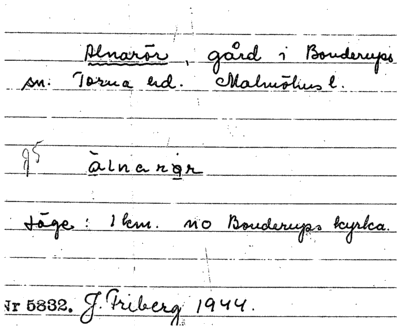 Alnarör, gård i Bonderups
sn. Torna hd. Malmöhus l.
g5
àlnarọr
Läge: 1 km. no Bonderups kyrka.
Nr 5832. J. Friberg 1944.